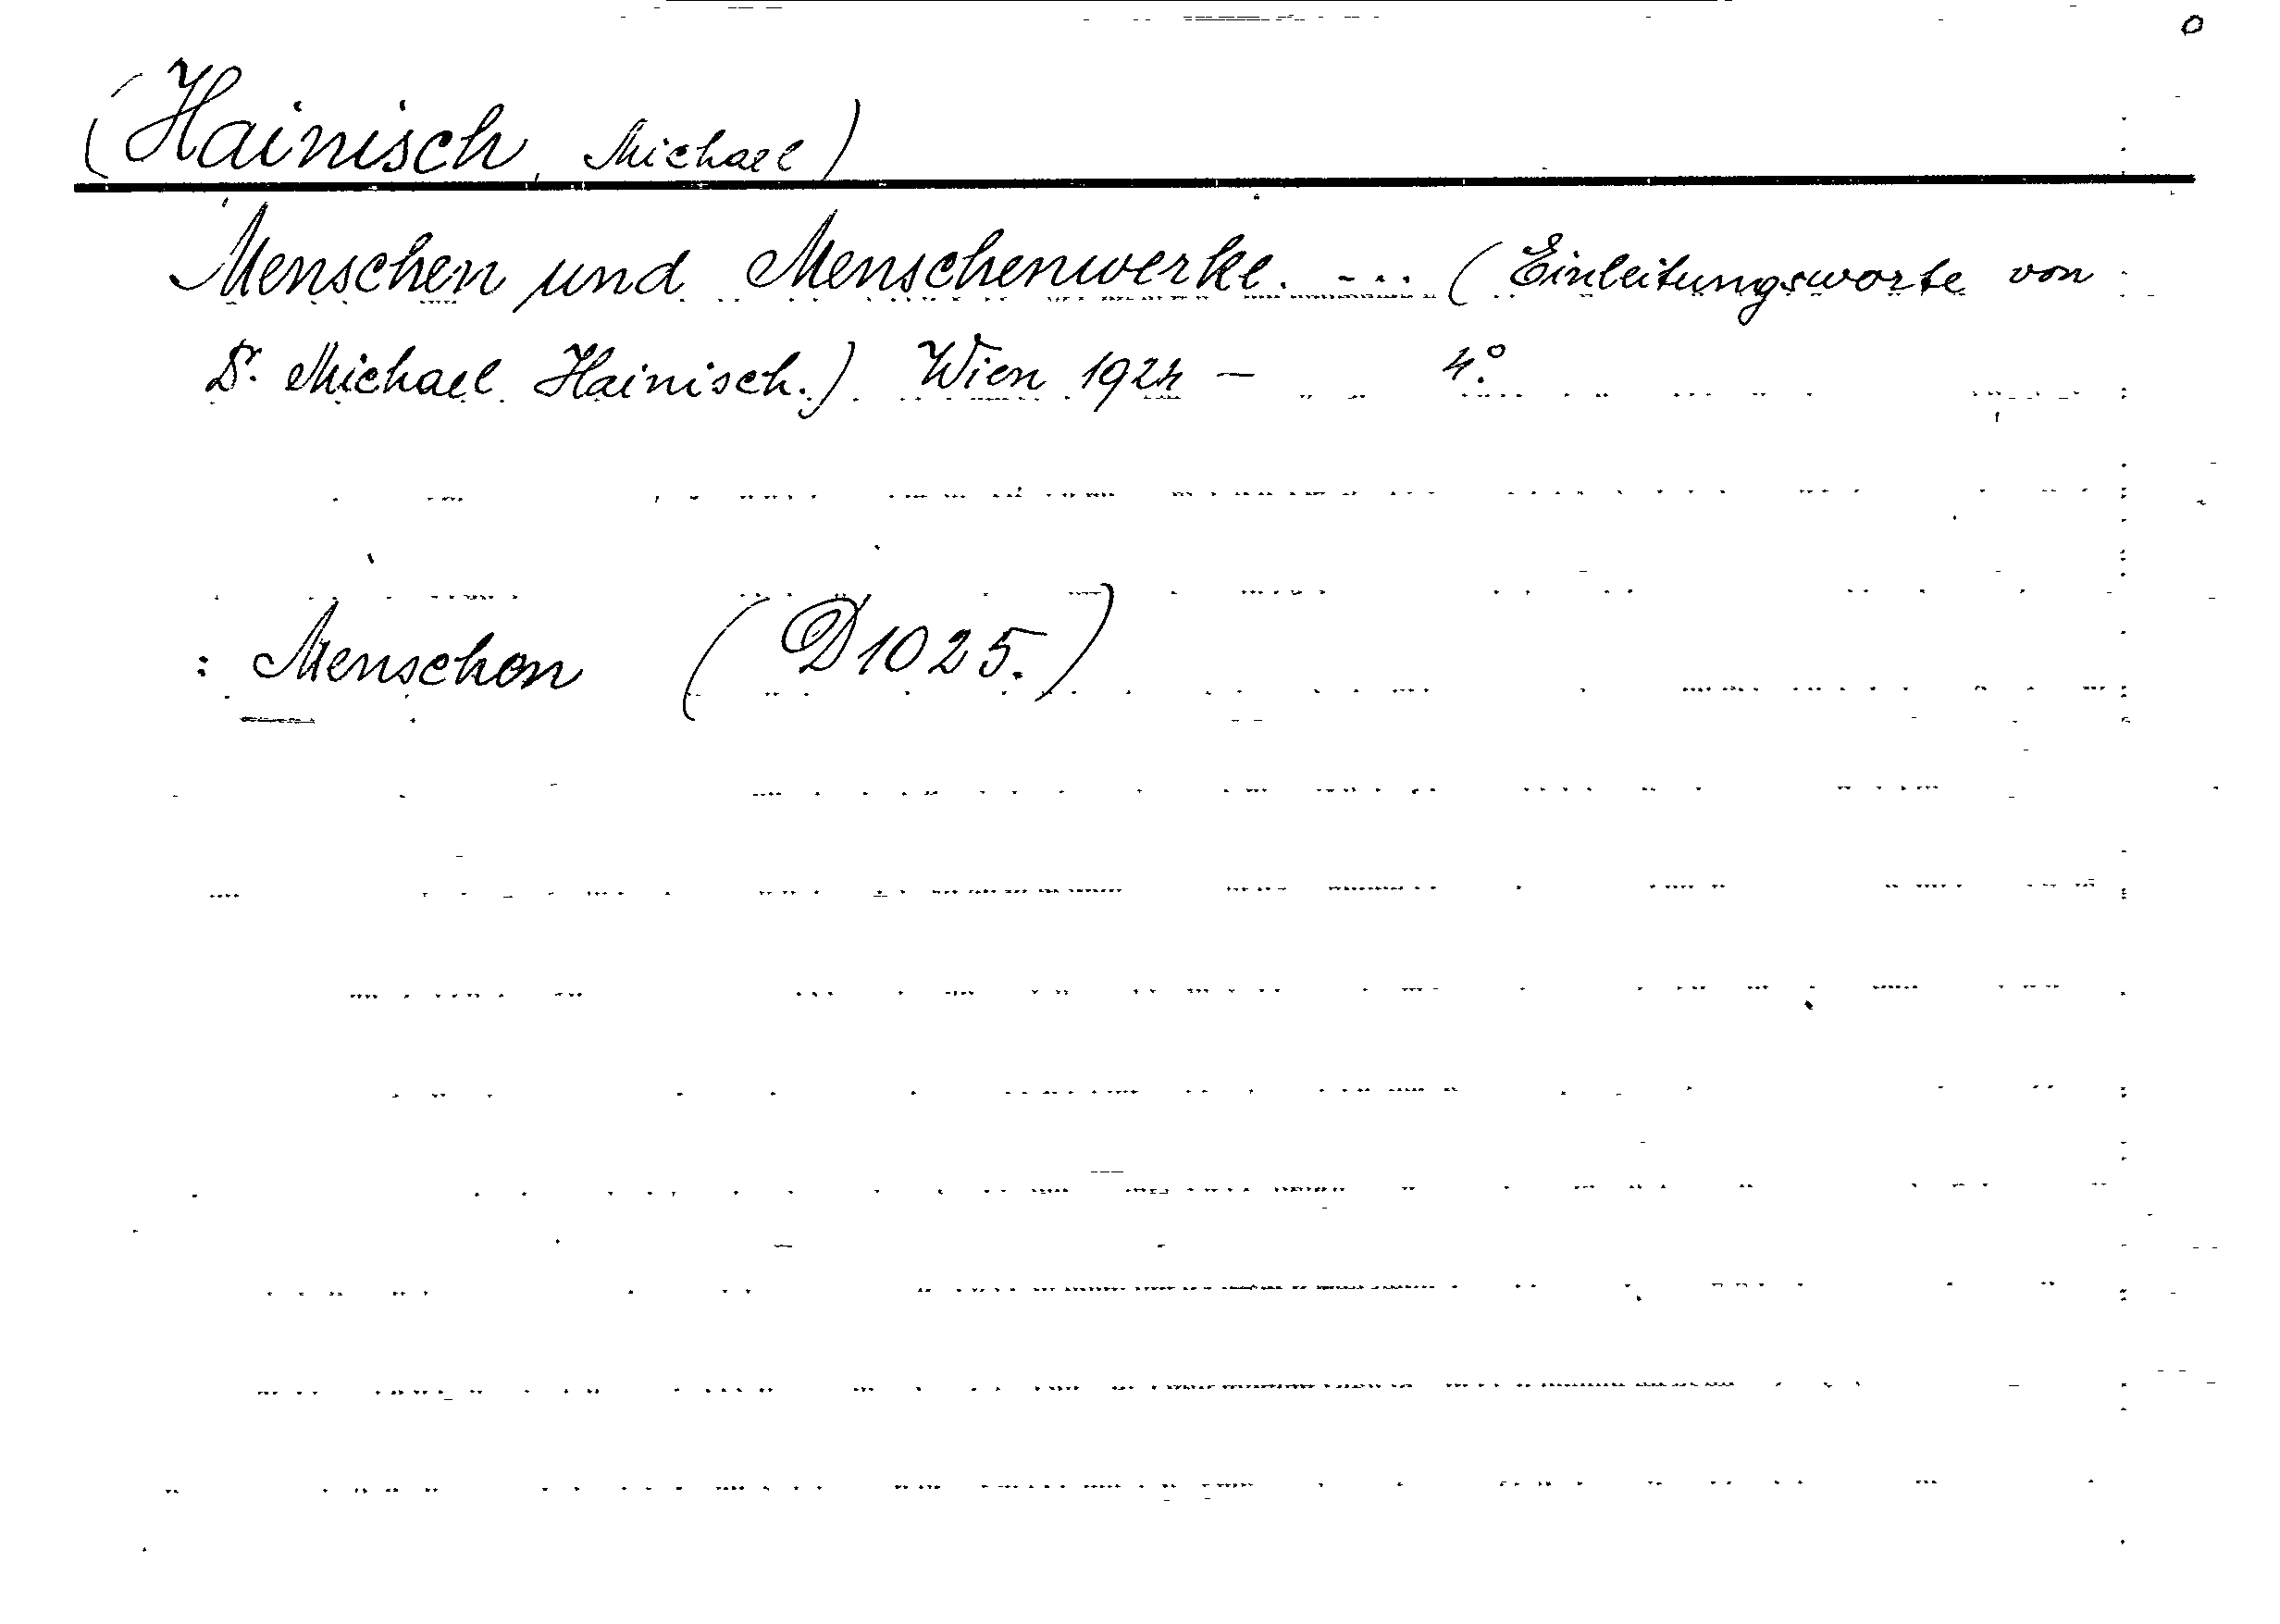 (Hainisch, Michael)
Menschen und Menschenwerke. ... (Einleitungsworte von
Dr. Michael Hainisch.) Wien 1924 – 4°.
: Menschen (D1025.)